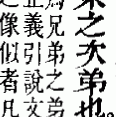 束之次弟也
爲兄弟之弟
正義引說文
像似者凡